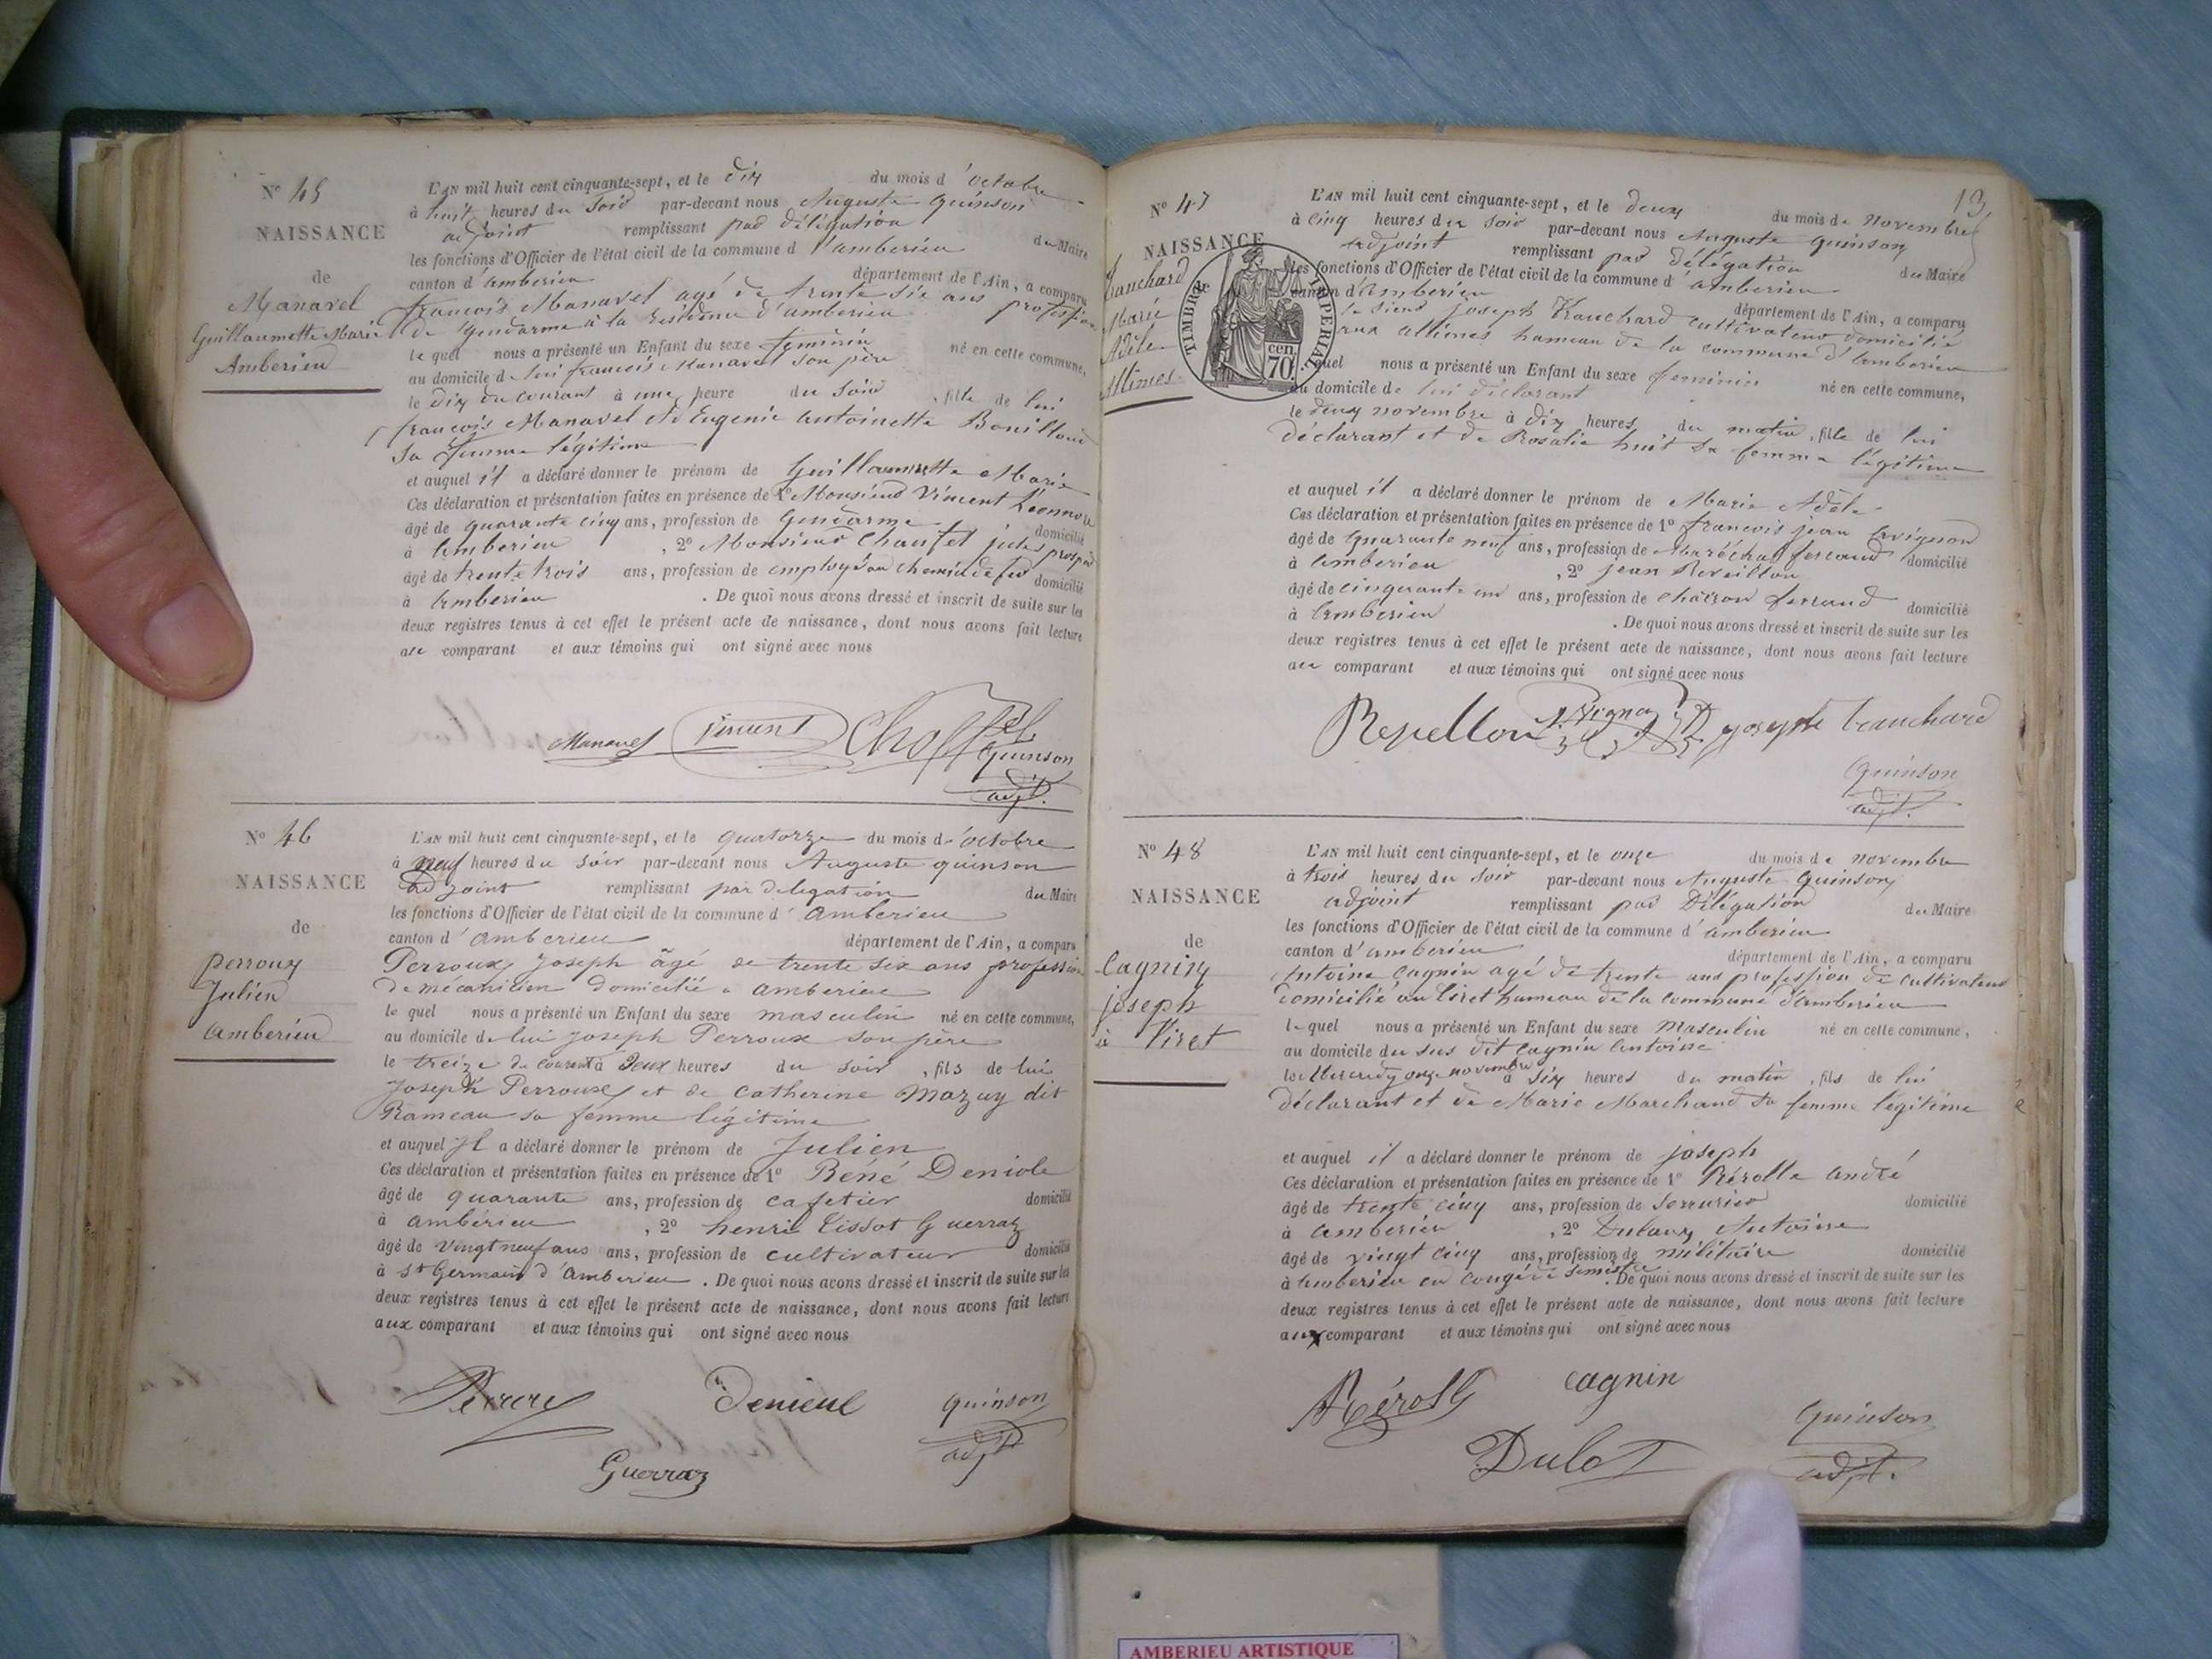 N° 45
NAISSANCE
de
Manavel
Guillaumette Marie
Amberieu
L'AN mil huit cent cinquante-sept, et le dix du mois d'octobre
à huit heures du soir par-devant nous Auguste Quinson
adjoint remplissant par délégation du Maire
les fonctions d'Officier de l'état civil de la commune d'amberieu
canton d'amberieu département de l'Ain, a comparu
françois Manavel agé de trente six ans profession
de gendarme à la résidence d'amberieu
le quel nous a présenté un Enfant du sexe feminin né en cette commune,
au domicile de lui françois Manavel son père
le dix du courant à une heure du soir, fille de lui
françois Manavel et d'Eugenie antoinette
sa femme légitime
et auquel il a déclaré donner le prénom de Guillaumette Marie
Ces déclaration et présentation faites en présence de 1° Monsieur Vincent
âgé de quarante cinq ans, profession de Gendarme domicilié
à Amberieu, 2° Monsieur jules
âgé de trente trois ans, profession de employé au chemin de fer domicilié
à Amberieu. De quoi nous avons dressé et inscrit de suite sur les
deux registres tenus à cet effet le présent acte de naissance, dont nous avons fait lecture
au comparant et aux témoins qui ont signé avec nous
Manavel Vincent
Quinson
adjt.
N° 46
NAISSANCE
de
Perroux
Julien
Amberieu
L'AN mil huit cent cinquante-sept, et le quatorze du mois d'octobre
à neuf heures du soir par-devant nous Auguste quinson
adjoint remplissant par delegation du Maire
les fonctions d'Officier de l'état civil de la commune d'Amberieu
canton d'Amberieu département de l'Ain, a comparu
Perroux Joseph âgé de trente six ans profession
de mécanicien domicilié a amberieu
le quel nous a présenté un Enfant du sexe masculin né en cette commune,
au domicile de lui Joseph Perroux son père
le treize du courant à deux heures du soir, fils de lui
Joseph Perroux et de Catherine Mazuy dit
Rameau sa femme légitime
et auquel Il a déclaré donner le prénom de Julien
Ces déclaration et présentation faites en présence de 1° René Deniole
âgé de quarante ans, profession de cafetier domicilié
à ambérieu, 2° henri Tissot Guerraz
âgé de vingt neuf ans ans, profession de cultivateur domicilié
à St Germain d'Amberieu. De quoi nous avons dressé et inscrit de suite sur les
deux registres tenus à cet effet le présent acte de naissance, dont nous avons fait lecture
aux comparant et aux témoins qui ont signé avec nous
Denieul quinson
adjt
Guerraz
13
N° 47
NAISSANCE
Marie
Adèle
Allimes
TIMBRE IMPERIAL
70 cen.
L'AN mil huit cent cinquante-sept, et le deux du mois de novembre
à cinq heures du soir par-devant nous Auguste Quinson
adjoint remplissant par délégation du Maire
les fonctions d'Officier de l'état civil de la commune d'amberieu
canton d'amberieu département de l'Ain, a comparu
le sieur joseph cultivateur domicilié
aux allimes hameau de la commune d'amberieu
quel nous a présenté un Enfant du sexe feminin né en cette commune,
au domicile de lui déclarant
le deux novembre à dix heures du matin, fille de lui
déclarant et de Rosalie huit sa femme légitime
et auquel il a déclaré donner le prénom de Marie Adèle
Ces déclaration et présentation faites en présence de 1° francois jean
âgé de quarante neuf ans, profession de Maréchal ferrant domicilié
à Amberieu, 2° jean
âgé de cinquante un ans, profession de domicilié
à Amberieu. De quoi nous avons dressé et inscrit de suite sur les
deux registres tenus à cet effet le présent acte de naissance, dont nous avons fait lecture
au comparant et aux témoins qui ont signé avec nous
joseph
Quinson
adjt.
N° 48
NAISSANCE
de
Cagnin
joseph
à Viret
L'AN mil huit cent cinquante-sept, et le onze du mois de novembre
à trois heures du soir par-devant nous Auguste Quinson
adjoint remplissant par Délégation du Maire
les fonctions d'Officier de l'état civil de la commune d'amberieu
canton d'amberieu département de l'Ain, a comparu
Antoine Cagnin agé de trente ans profession de cultivateur
domicilié au Tiret hameau de la commune d'amberieu
le quel nous a présenté un Enfant du sexe Masculin né en cette commune,
au domicile du sus dit Cagnin Antoine
le Mercredy onze novembre à six heures du matin, fils de lui
déclarant et de Marie Marchand sa femme légitime
et auquel il a déclaré donner le prénom de joseph
Ces déclaration et présentation faites en présence de 1° Rérolle andré
âgé de trente cinq ans, profession de Serrurier domicilié
à amberieu, 2° Antoine
âgé de vingt cinq ans, profession de militaire domicilié
à Amberieu en congé de semestre. De quoi nous avons dressé et inscrit de suite sur les
deux registres tenus à cet effet le présent acte de naissance, dont nous avons fait lecture
aux comparant et aux témoins qui ont signé avec nous
cagnin
Quinson
adjt.
AMBERIEU ARTISTIQUE